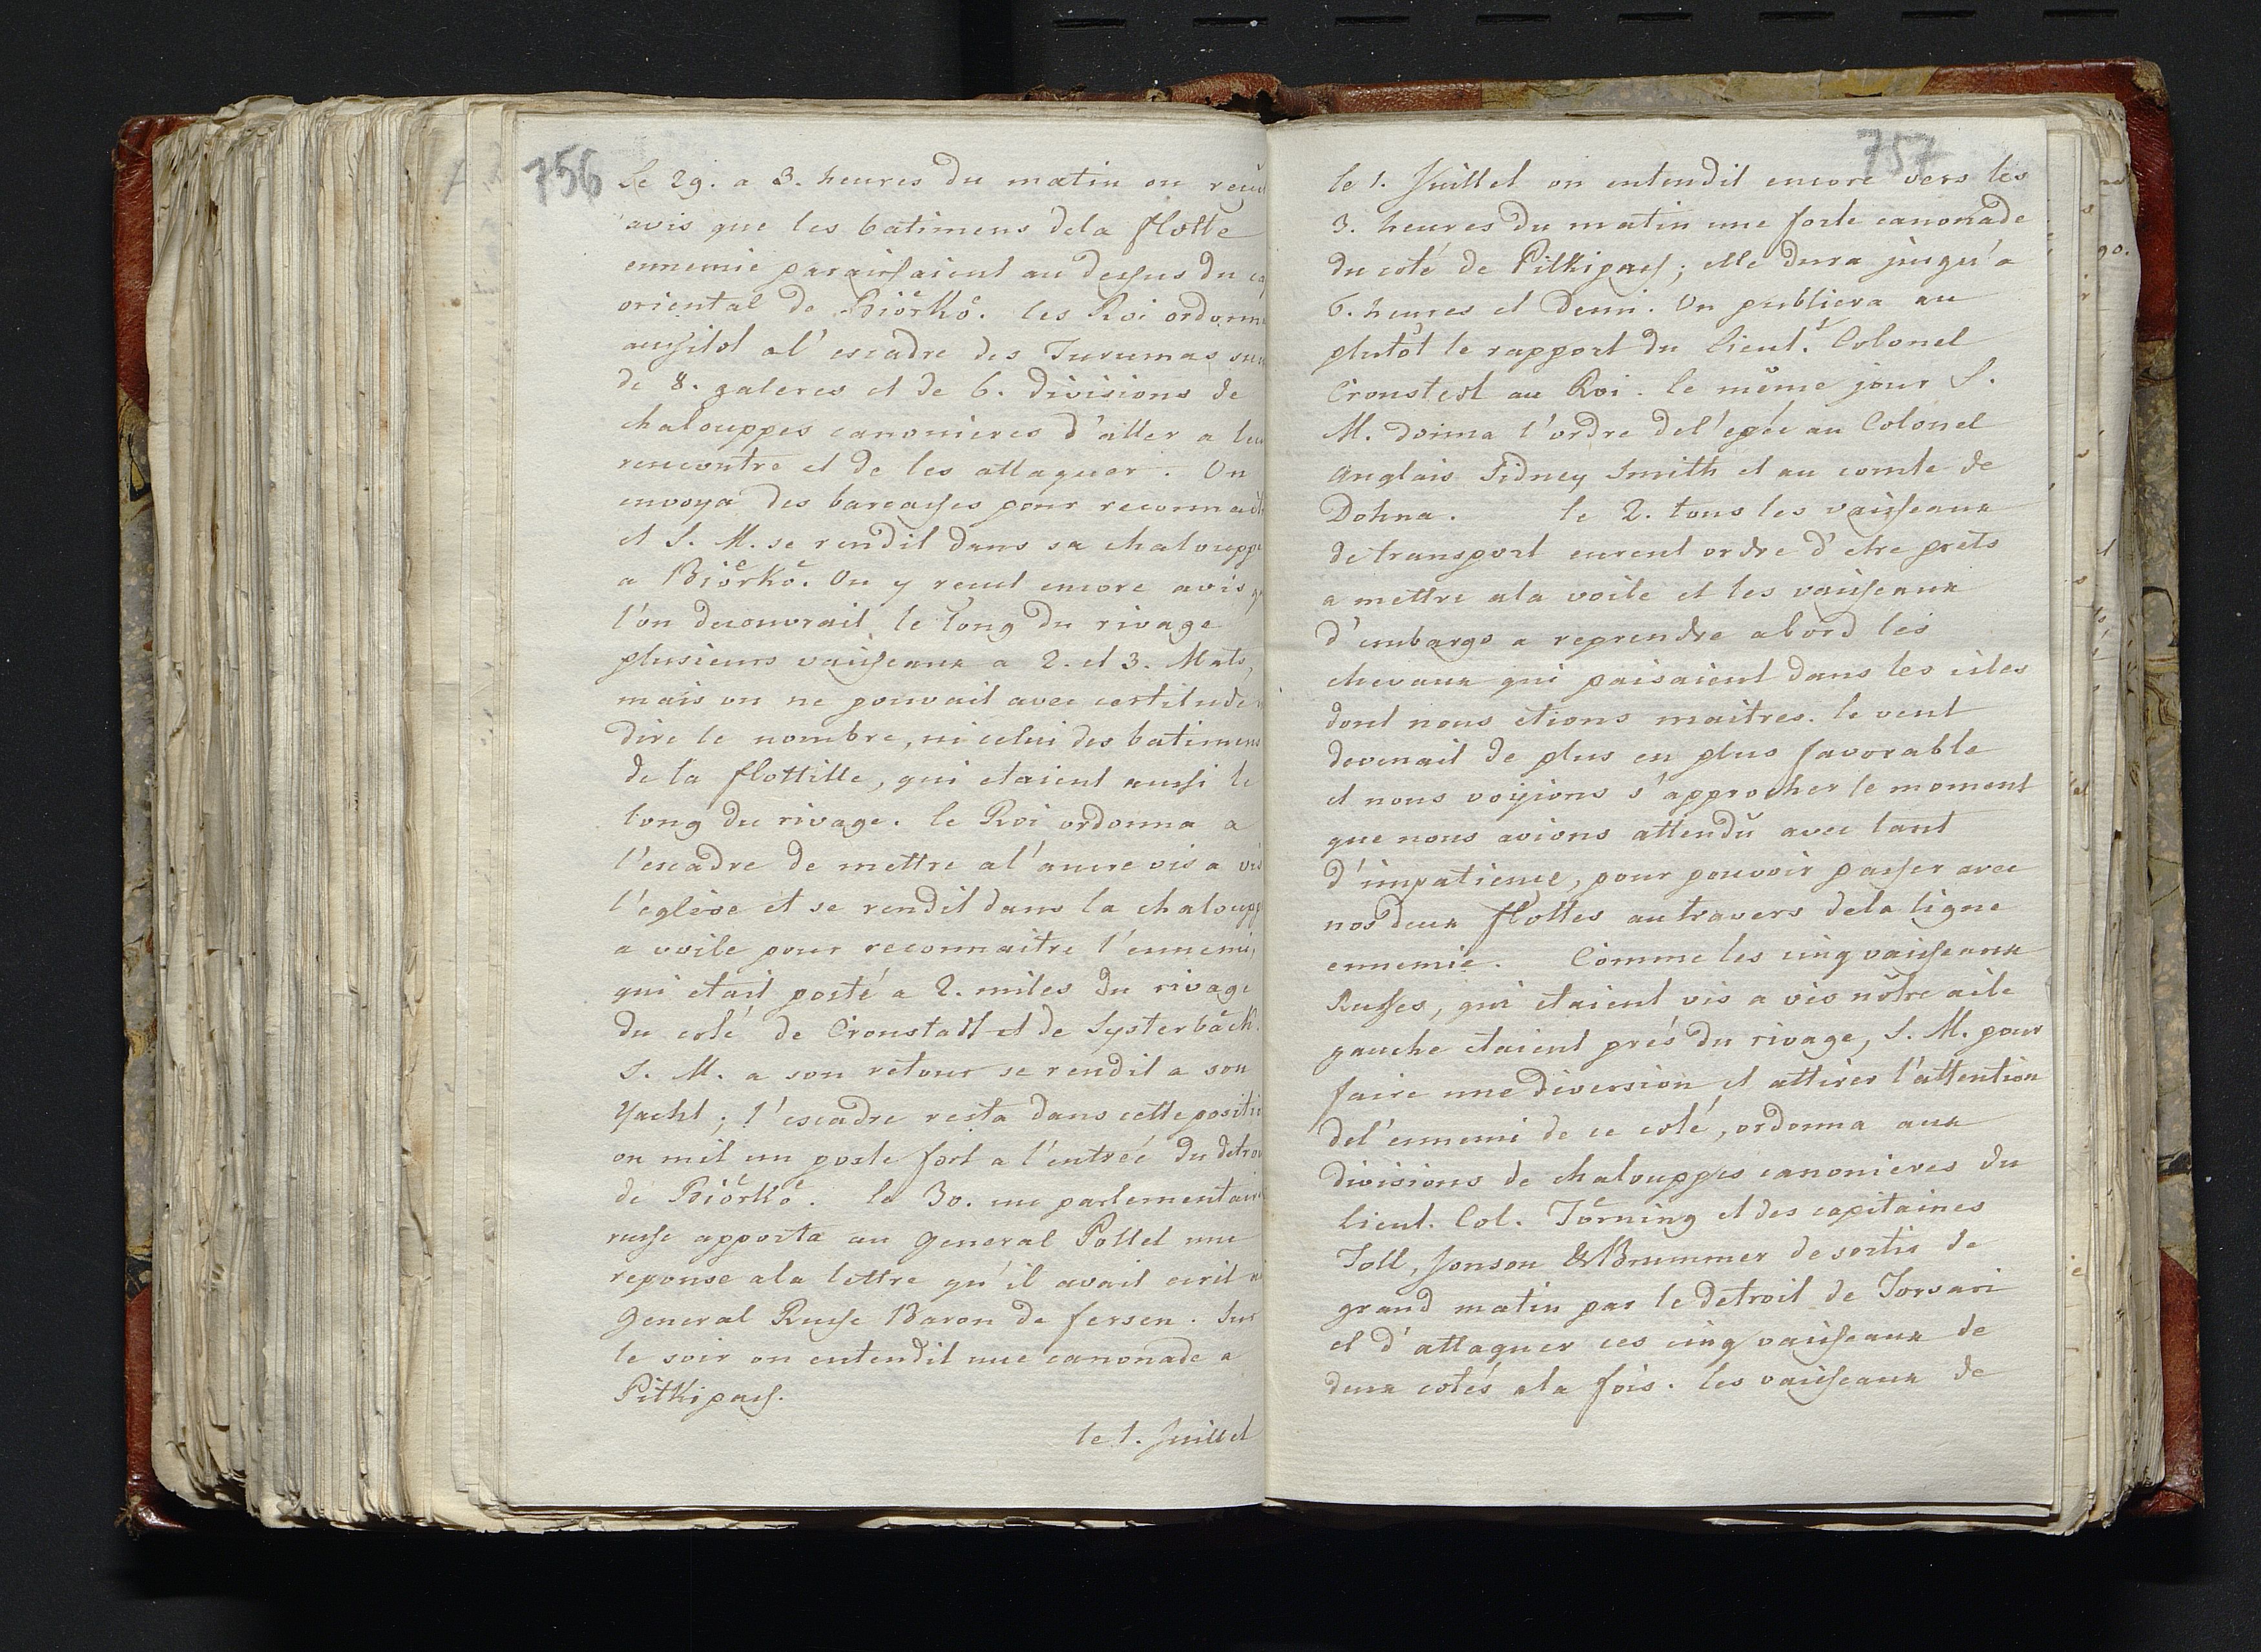 756
Le 29. a 3. heures du matin on reçut
avis que les batimens dela flotte
ennemie paraissaient au dessus du cap
oriental de Biörkö. les Roi ordonna
aussitot al' escadre des Turumas
de 8. galeres et de 6. divisions de
chalouppes canonieres d'aller a leur
rencontre et de les attaquer. On
envoya des barcasses pour reconnaitre
et S. M. se rendit dans sa chalouppe
a Biörkö. On y recut encore avis que
l'on decouvrait le long du rivage
plusieurs vaisseaux a 2. et 3. Mats,
mais on ne pouvait avec certitude
dire le nombre, ni celui des batimens
de la flottille, qui etaient aussi le
long du rivage. le Roi ordonna a
l'escadre de mettre al'ancre vis a vis
l'eglise et se rendit dans la chalouppe
a voile pour reconnaitre l'ennemi,
qui etait posté a 2. miles du rivage
du coté de Cronstadt et de Systerbäck.
S. M. a son retour se rendit a son
Yacht; l'escadre resta dans cette position
on mit un poste fort a l'entrée du detroit
de Biörkö. le 30. un parlementaire
russe apporta au General Pollet une
reponse ala lettre qu'il avait ecrit au
General Russe Baron de fersen. Sur
le soir on entendit une canonade a
Pitkipass.
le 1. Juillet
757
le 1. Juillet on entendit encore vers les
3. heures du matin une forte canonade
du coté de Pitkipass; elle dura jusqu'a
6. heures et demi. On publiera au
plutôt le rapport du Lieut. Colonel
Cronstedt au Roi. le même jour S.
M. donna l'ordre del'epée au Colonel
Anglais Sidney Smith et au comte de
Dohna. le 2. tous les vaisseaux
de transport eurent ordre d'etre prets
a mettre ala voile et les vaisseaux
d'embargo a reprendre abord les
chevaux qui paisaient dans les isles
dont nous etions maitres. le vent
devenait de plus en plus favorable
et nous voyions s'approcher le moment
que nous avions attendu avec tant
d'impatience, pour pouvoir passer avec
nos deux flottes au travers dela ligne
ennemie. Comme les cinq vaisseaux
Russes, qui etaient vis a vis nôtre aile
gauche etaient prés du rivage, S. M. pour
faire une diversion et attirer l'attention
del'ennemi de ce coté, ordonna aux
divisions de chalouppes canonieres du
Lieut. Col. Törning et des capitaines
Toll, Jonson & Brummer de sortir de
grand matin par le detroit de Torsari
et d'attaquer ces cinq vaisseaux de
deux cotés ala fois. les vaisseaux de